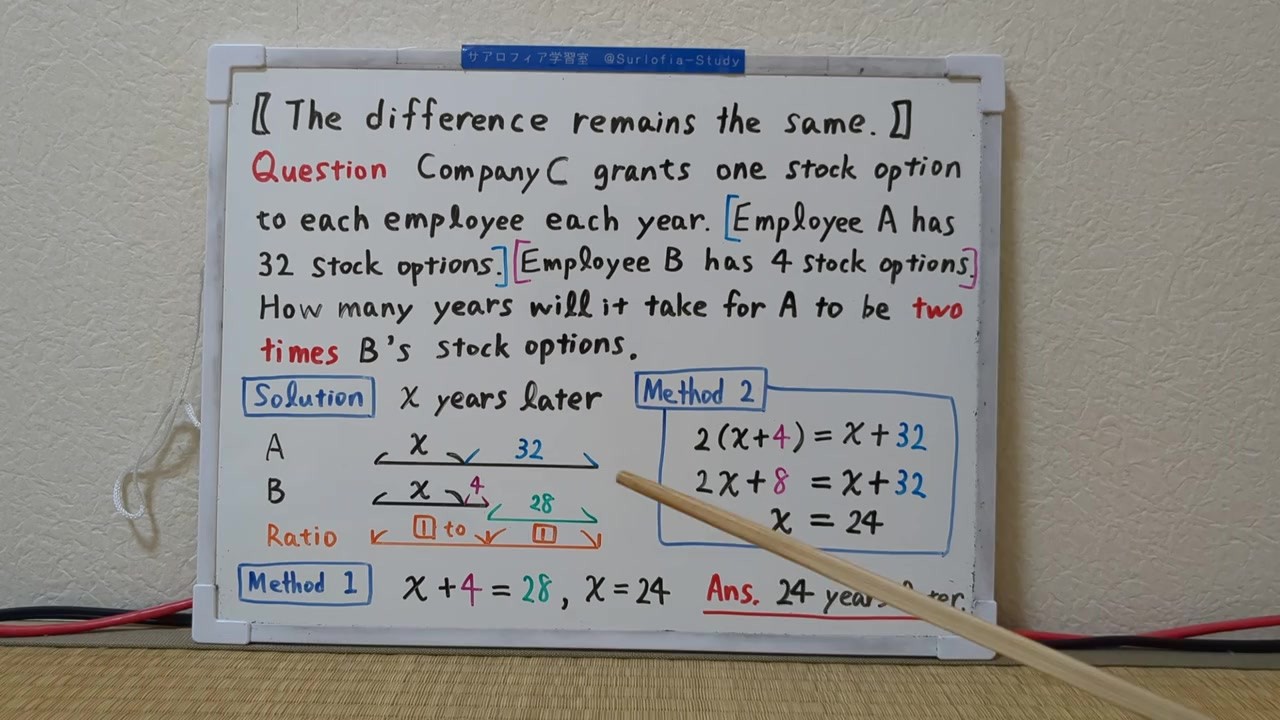 サアロフィア学習室 @Surlofia-Study
〚 The difference remains the same. 〛
Question Company C grants one stock option
to each employee each year. [Employee A has
32 stock options.] [Employee B has 4 stock options.]
How many years will it take for A to be two
times B's stock options.
Solution x years later
A x 32
B x 4 28
Ratio 1 to 1
Method 2
2(x+4) = x+32
2x+8 = x+32
x = 24
Method 1 x+4 = 28, x = 24 Ans. 24 years